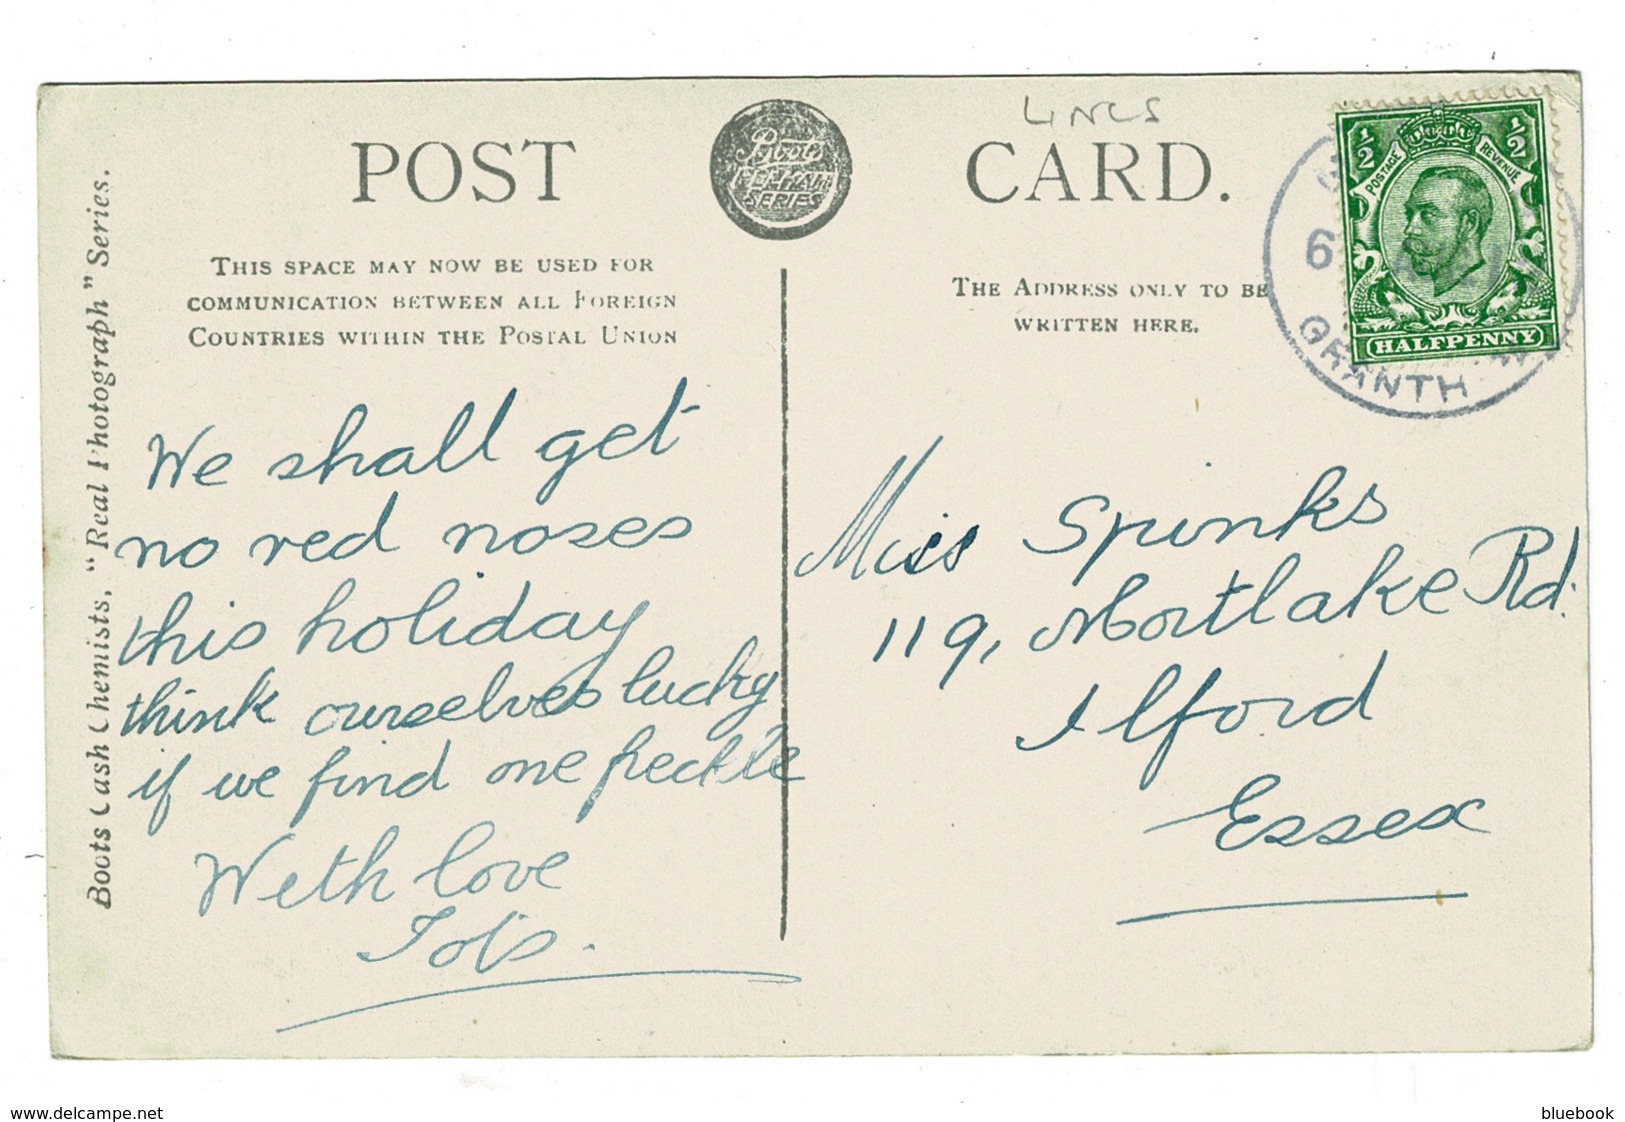 LINCS
POST CARD.
Boots
PELHAM
SERIES
THIS SPACE MAY NOW BE USED FOR
COMMUNICATION BETWEEN ALL FOREIGN
COUNTRIES WITHIN THE POSTAL UNION
THE ADDRESS ONLY TO BE
WRITTEN HERE.
½ ½
POSTAGE REVENUE
HALFPENNY
6
GRANTH
Boots Cash Chemists, "Real Photograph" Series.
We shall get
no red noses
this holiday
think ourselves lucky
if we find one freckle
With love
Miss Spinks
119, Mortlake Rd.
Ilford
Essex
www.delcampe.net
bluebook